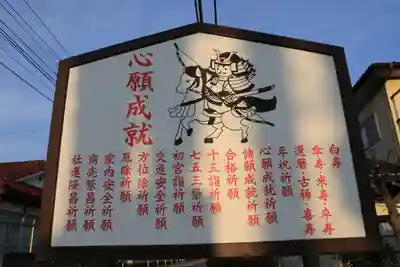 心願成就
白寿
傘寿・米寿・卒寿
還暦・古稀・喜寿
年祝祈願
心願成就祈願
諸願成就祈願
合格祈願
十三詣祈願
七五三祭祈願
初宮詣祈願
交通安全祈願
方位除祈願
厄除祈願
家内安全祈願
商売繁昌祈願
社運隆昌祈願